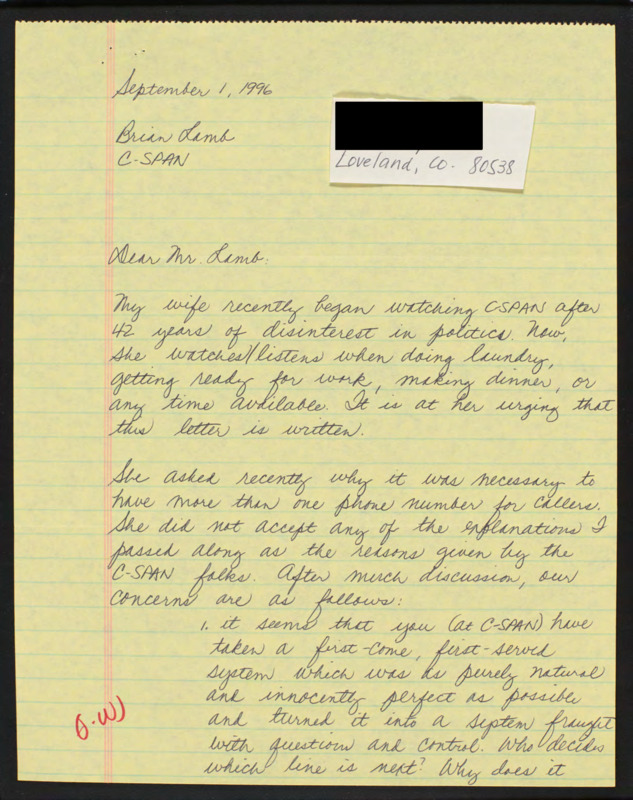 September 1, 1996
Brian Lamb
C-SPAN
Loveland, CO. 80538
Dear Mr. Lamb:
My wife recently began watching CSPAN after
42 years of disinterest in politics. Now,
she watches/listens when doing laundry,
getting ready for work, making dinner, or
any time available. It is at her urging that
this letter is written.
She asked recently why it was necessary to
have more than one phone number for callers.
She did not accept any of the explanations I
passed along as the reasons given by the
C-SPAN folks. After much discussion, our
concerns are as follows:
1. it seems that you (at C-SPAN) have
taken a first-come, first-served
system which was as purely natural
and innocently perfect as possible
and turned it into a system fraught
with questions and control. Who decides
which line is next? Why does it